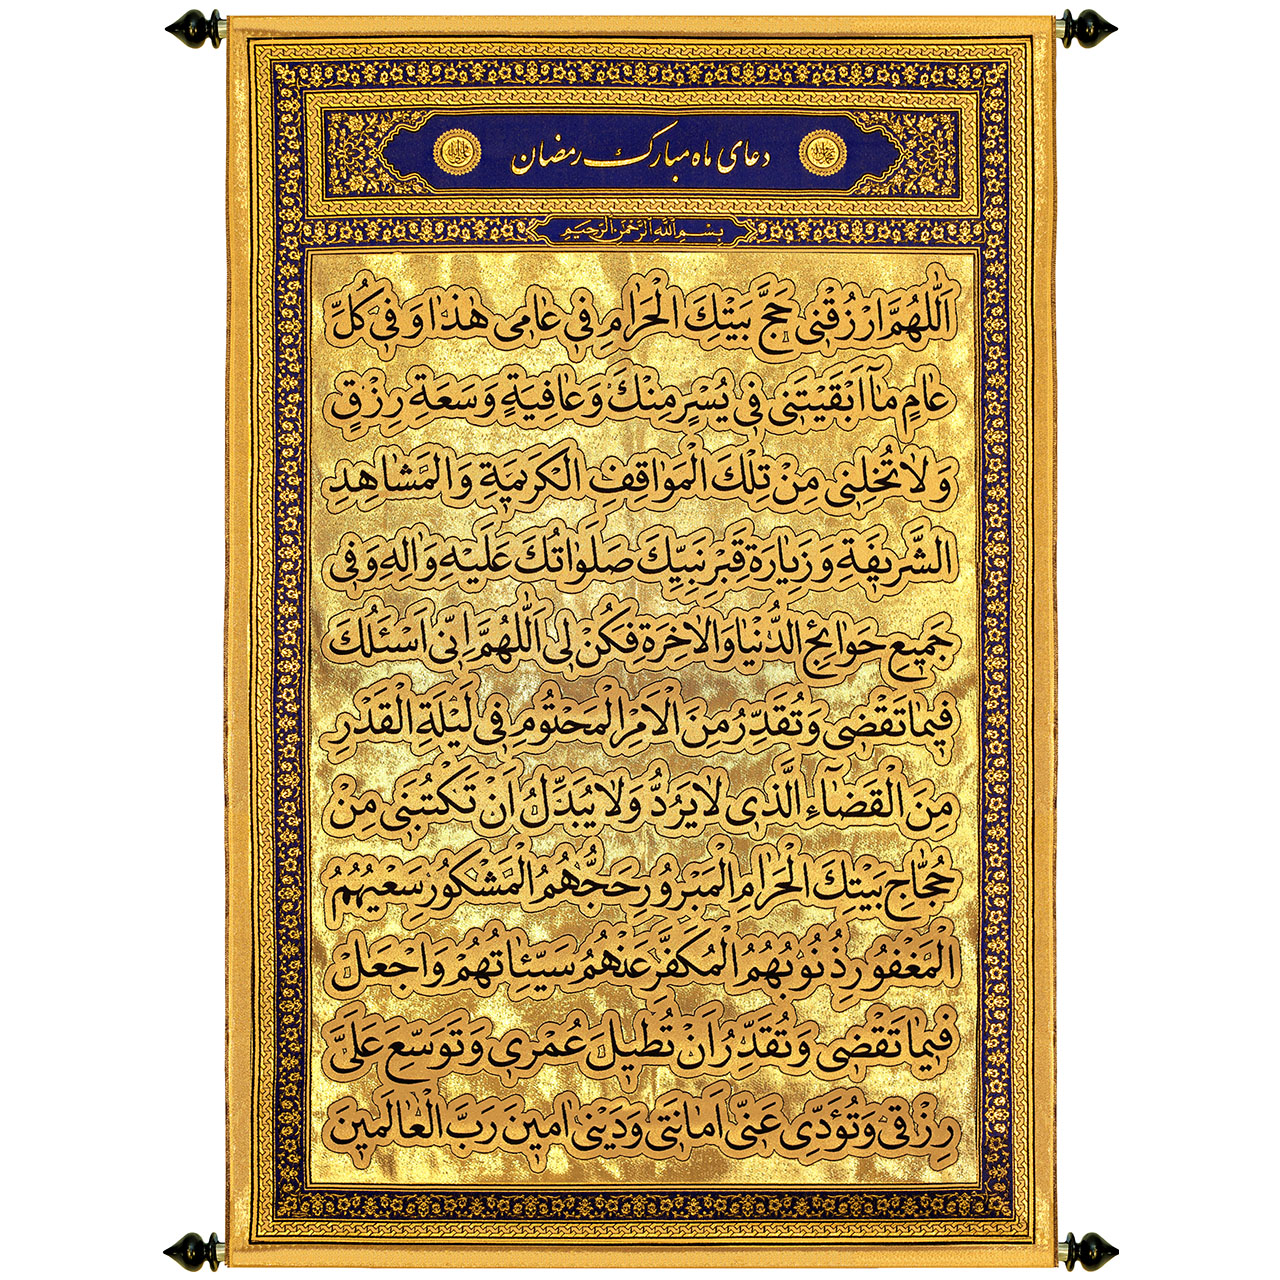 دعای ماه مبارک رمضان
بِسْمِ اللّٰهِ الرَّحْمٰنِ الرَّحیمِ
اَللّٰهُمَّ ارْزُقْنی حَجَّ بَیْتِکَ الْحَرٰامِ فی عٰامی هٰذٰا وَ فی کُلِّ
عٰامٍ مٰآ اَبْقَیْتَنی فی یُسْرٍ مِنْکَ وَ عٰافِیَةٍ وَ سَعَةِ رِزْقٍ
وَ لاٰ تُخْلِنی مِنْ تِلْکَ الْمَوٰاقِفِ الْکَریمَةِ وَ الْمَشٰاهِدِ
الشَّریفَةِ وَ زِیٰارَةِ قَبْرِ نَبِیِّکَ صَلَوٰاتُکَ عَلَیْهِ وَ اٰلِهِ وَ فی
جَمیعِ حَوٰائِجِ الدُّنْیٰا وَ الْاٰخِرَةِ فَکُنْ لی اَللّٰهُمَّ اِنّی اَسْئَلُکَ
فیمٰا تَقْضی وَ تُقَدِّرُ مِنَ الْاَمْرِ الْمَحْتُومِ فی لَیْلَةِ الْقَدْرِ
مِنَ الْقَضٰآءِ الَّذی لاٰ یُرَدُّ وَ لاٰ یُبَدَّلُ اَنْ تَکْتُبَنی مِنْ
حُجّٰاجِ بَیْتِکَ الْحَرٰامِ الْمَبْرُورِ حَجُّهُمُ الْمَشْکُورِ سَعْیُهُمُ
الْمَغْفُورِ ذُنُوبُهُمُ الْمُکَفَّرِ عَنْهُمْ سَیِّئٰاتُهُمْ وَ اجْعَلْ
فیمٰا تَقْضی وَ تُقَدِّرُ اَنْ تُطیلَ عُمْری وَ تُوَسِّعَ عَلَیَّ
رِزْقی وَ تُؤَدِّیَ عَنّی اَمٰانَتی وَ دَیْنی اٰمینَ رَبَّ الْعٰالَمینَ